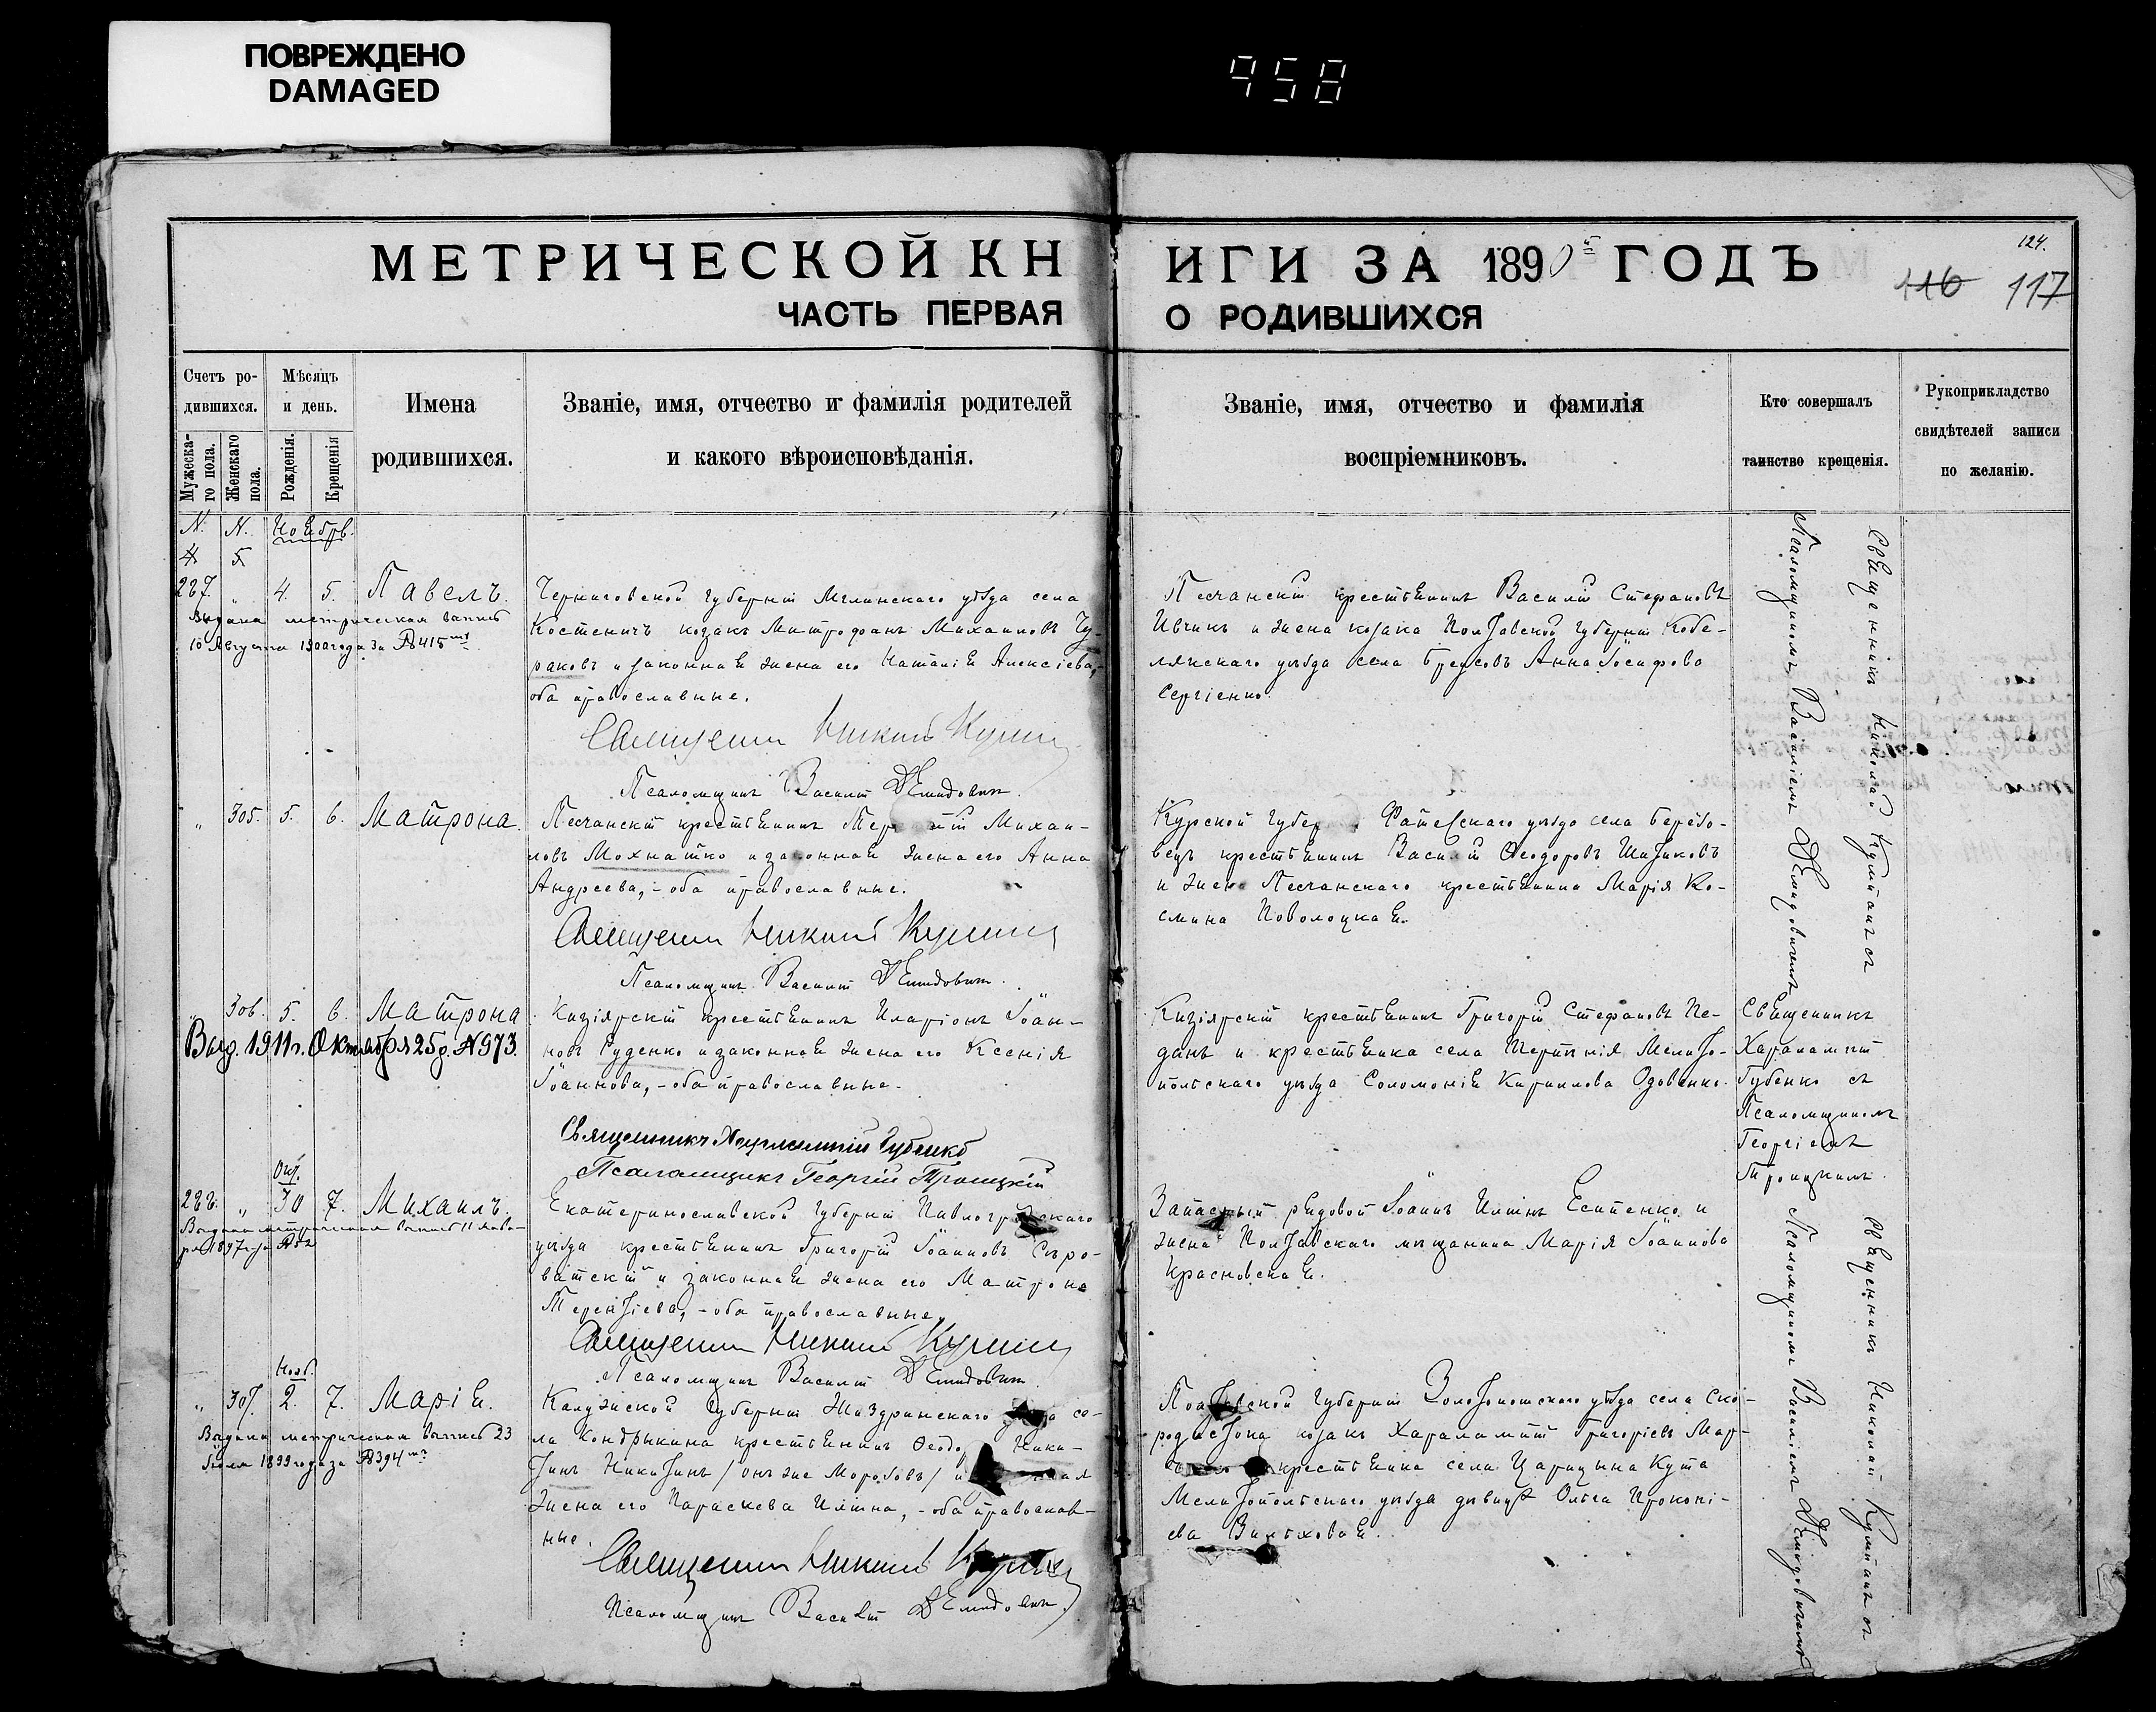 ПОВРЕЖДЕНО
DAMAGED
958
МЕТРИЧЕСКОЙ КНИГИ ЗА 1890й ГОДЪ
124.
116 117
ЧАСТЬ ПЕРВАЯ О РОДИВШИХСЯ
Счетъ ро-
дившихся.
Мужеска-
го пола.
Женскаго
пола.
Мѣсяцъ
и день.
Рожденія.
Крещенія
Имена
родившихся.
Званіе, имя, отчество и фамилія родителей
и какого вѣроисповѣданія.
Званіе, имя, отчество и фамилія
воспріемниковъ.
Кто совершалъ
таинство крещенія.
Рукоприкладство
свидѣтелей записи
по желанію.
N. N. Ноябрь.
4 5
287. „ 4. 5. Павелъ.
Выдана метрическая выпись
10 Августа 1900 года за № 415
Черниговской губерніи Мглинскаго уѣзда села
Костеничъ козакъ Митрофанъ Михаиловъ Чу-
раковъ и законная жена его Наталія Алексіева,
оба православные.
Псаломщикъ Василій Демидовичъ.
Песчанскій крестьянинъ Василій Стефановъ
Ивчикъ и жена козака Полтавской губерніи Кобе-
лякскаго уѣзда села Бреусовъ Анна Іосифова
Сергіенко.
Священникъ Николай съ
Псаломщикомъ Василіемъ Демидовичемъ
„ 305. 5. 6. Матрона.
Песчанскій крестьянинъ Михаи-
ловъ Мохнатко и законная жена его Анна
Андреева, - оба православные.
Псаломщикъ Василій Демидовичъ.
Курской губер Фатежскаго уѣзда села Березо-
вецъ крестьянинъ Василій Ѳеодоровъ
и жена Песчанскаго крестьянина Марія Ко-
смина Поволоцкая.
„ 306. 5. 6. Матрона
Выд. 1911 г. Октября 25 д. № 973.
Кизіярскій крестьянинъ Иларіонъ Іоан-
новъ Руденко и законная жена его Ксенія
Іоаннова, - оба православные.
Священникъ Харлампій Губенко
Псаломщикъ Георгій Троицкій
Кизіярскій крестьянинъ Григорій Стефановъ Пе-
данъ и крестьянка села Терпѣнія Мелито-
польскаго уѣзда Соломонія Кириллова Одовенко.
Священникъ
Харалампій
Губенко съ
Псаломщикомъ
Георгіемъ
Троицкимъ.
Окт.
288. „ 30 7. Михаилъ.
Выдана метрическая выпись 11 Янва-
ря 1897 г. за №
Екатеринославской губерніи Павлоградскаго
уѣзда крестьянинъ Григорій Іоанновъ Сыро-
ватскій и законная жена его Матрона
Терентіева, - оба православные.
Псаломщикъ Василій Демидовичъ
Запасный рядовой Іоаннъ Ильинъ Есипенко и
жена Полтавскаго мѣщанина Марія Іоаннова
Красновская.
Священникъ Николай съ
Псаломщикомъ Василіемъ Демидовичемъ
Нояб.
„ 307. 2. 7. Марія.
Выдана метрическая выпись 23
Іюля 1899 года за № 394
Калужской губерніи Жиздринскаго уѣзда се-
ла Кондрыкина крестьянинъ Ѳеодо Ники-
тинъ Никитинъ / онъ же Морозовъ / и
жена его Параскева Ильина, - оба православ-
ные.
Псаломщикъ Василій Демидовичъ.
Полтавской губерніи Золотоношскаго уѣзда села Ско-
козакъ Харалампій Григоріевъ Мар-
крестьянка села Царицына Кута
Мелитопольскаго уѣзда дѣвица Ольга Прокопі-
ева Вильховая.